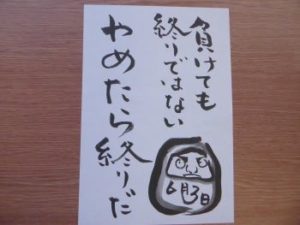 負けても
終りではない
やめたら終りだ
6月3日